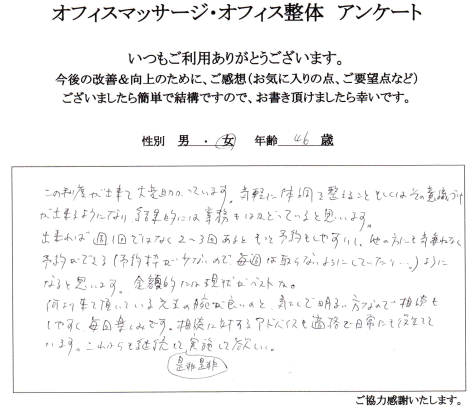 オフィスマッサージ・オフィス整体 アンケート
いつもご利用ありがとうございます。
今後の改善&向上のために、ご感想(お気に入りの点、ご要望点など)
ございましたら簡単で結構ですので、お書き頂けましたら幸いです。
性別 男 ・ 女 年齢 46 歳
この制度が出来て大変助かっています。気軽に体調を整えること もしくはその意識づけ
が出来るようになり、結果的には業務もはかどっていると思います。
出来れば週1回ではなく2〜3回あるともっと予約もしやすいし、他の方にも気兼ねなく
予約ができる(予約枠が少ないので毎週は取らないようにしていたり…)ように
なると思います。金額的には現状がベストかな。
何より来て頂いている先生の腕が良いのと、気さくで明るい方なので相談も
しやすく毎回楽しみです。相談に対するアドバイスも適格で日常にも役立てて
います。これからも継続して実施して欲しい。
是非是非
ご協力感謝いたします。